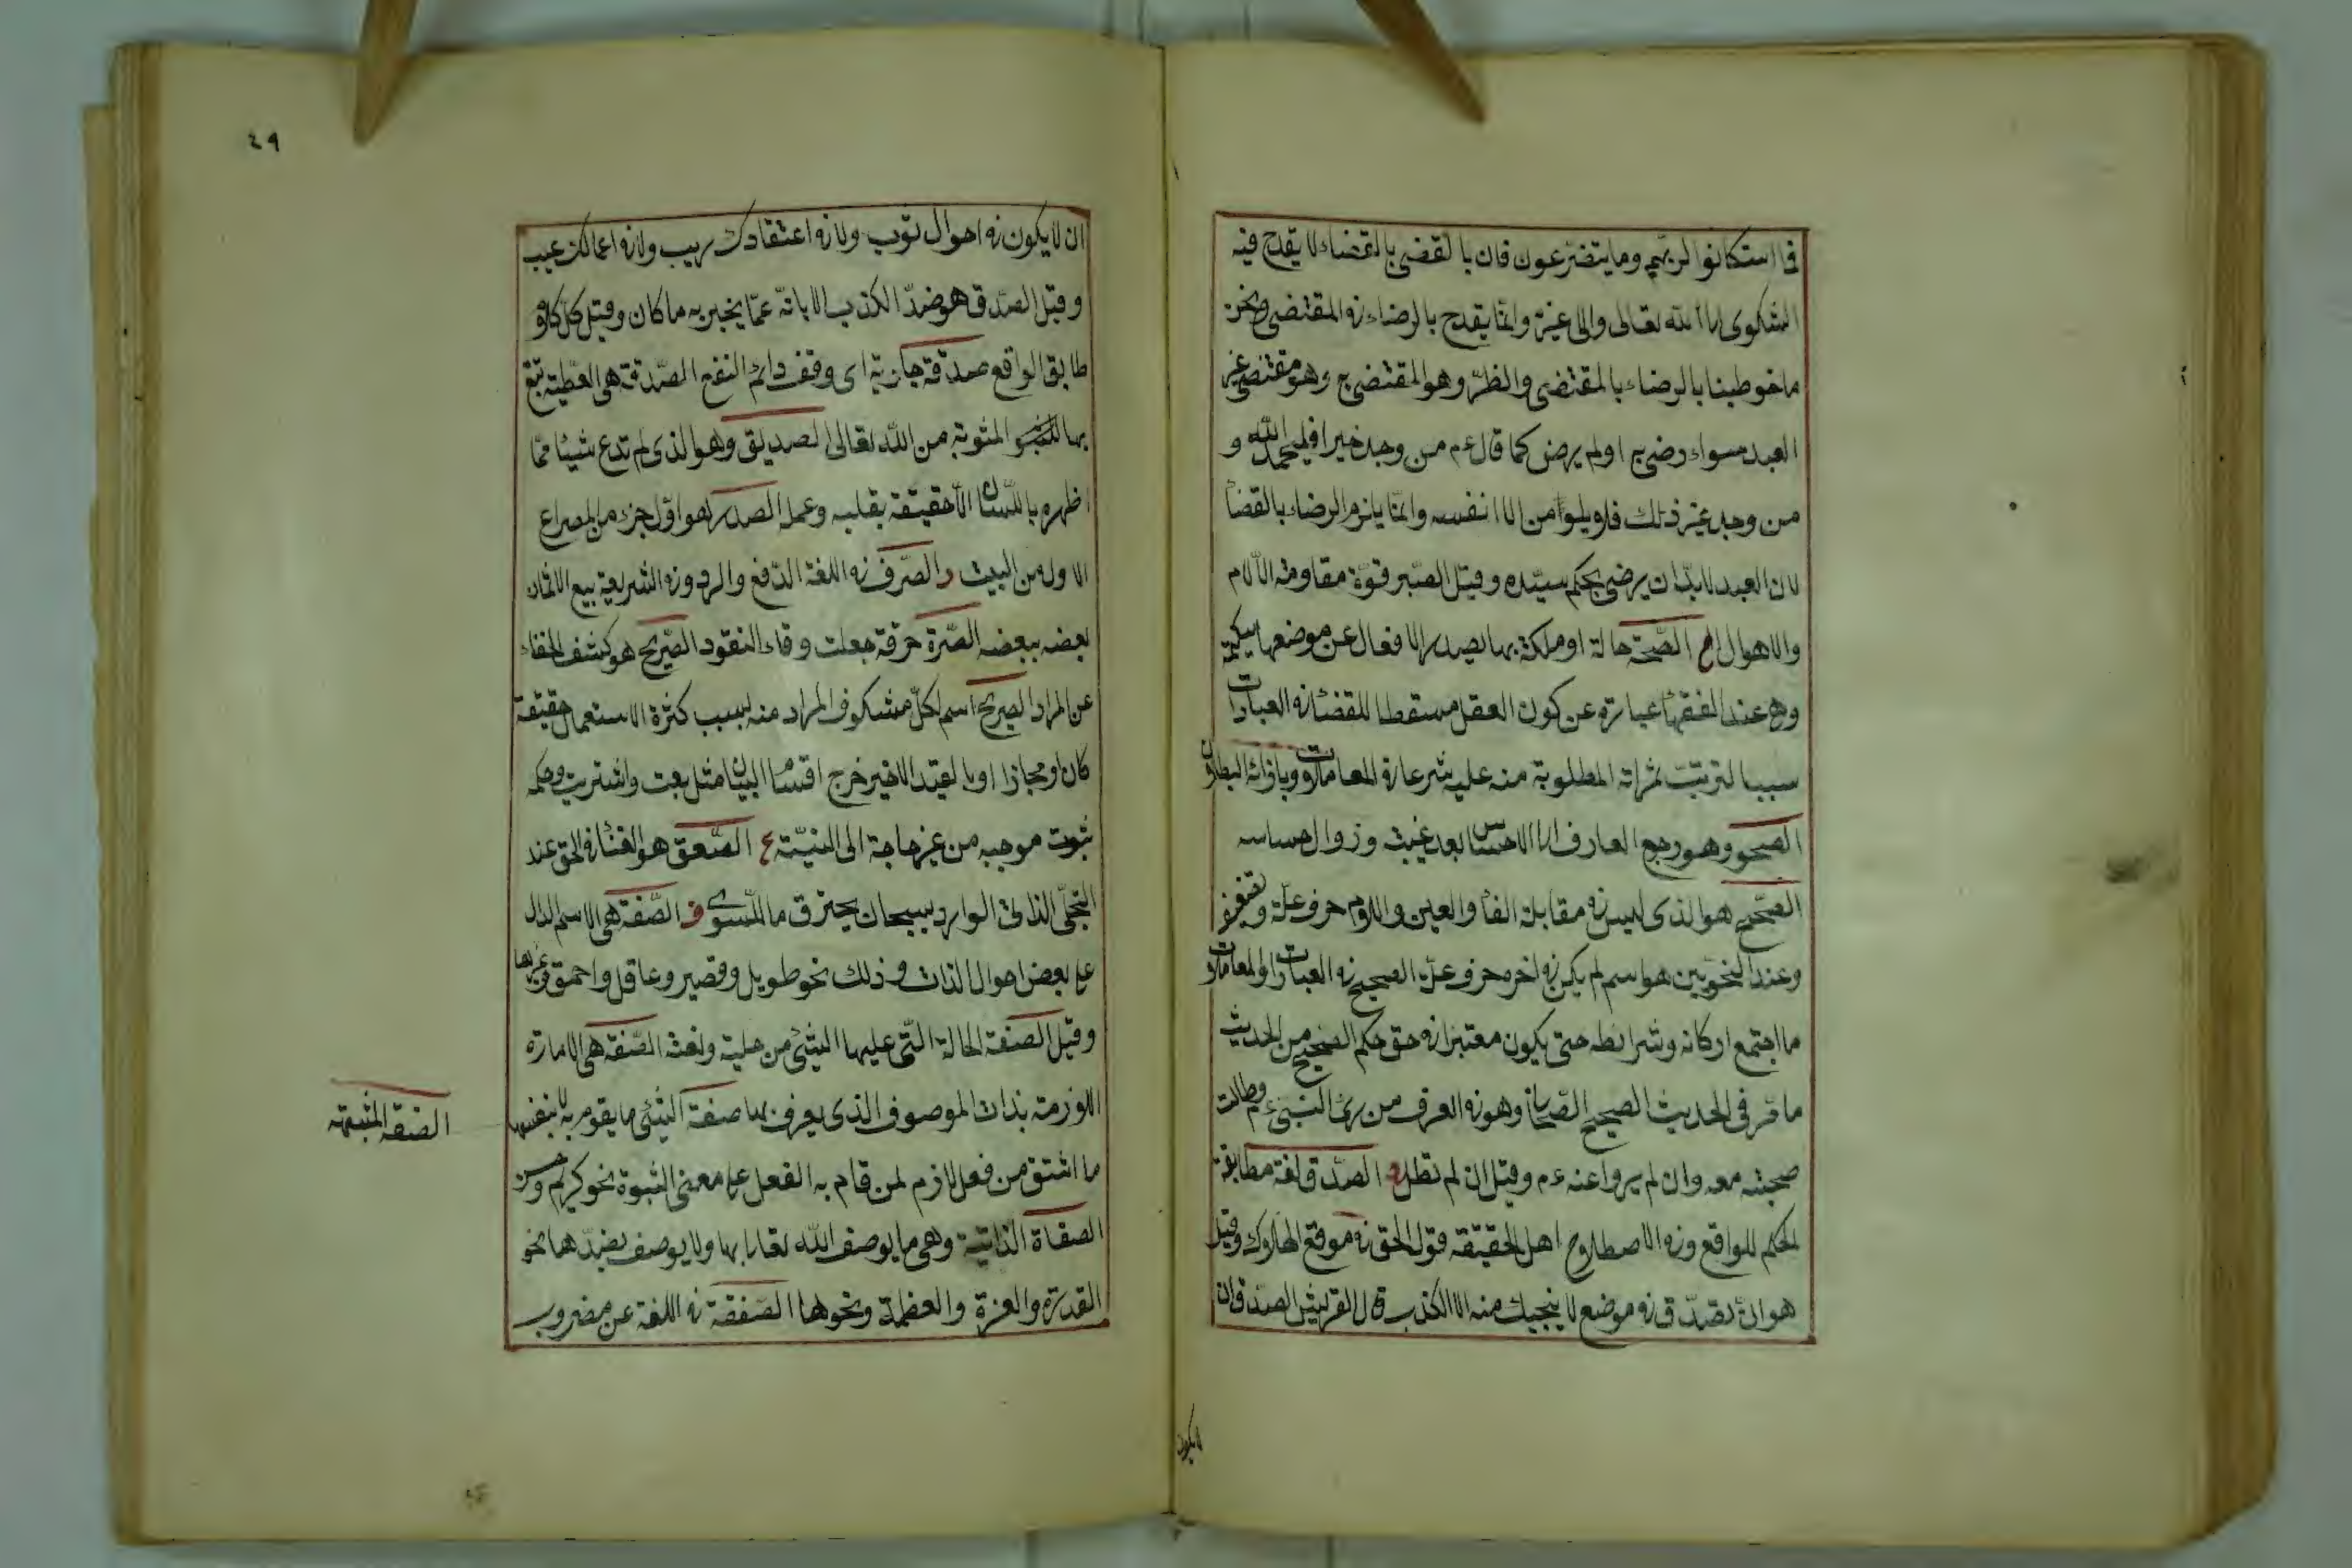 فما استكانوا لربهم وما يتضرعون فان بالقضى بالقضاء لا يقدح فيه
الشكوى الى الله تعالى والى غيره وانما يقدح بالرضاء فى المقتضى ونحن
ما خوطبنا بالرضاء بالمقتضى والظر وهو المقتضى ج وهو مقتضى غير
العبد سواء رضى ج اولم يرض كما قال ءم من وجد خيرا فليحمد الله و
من وجد غير ذلك فلا يلومن الا نفسه وانما يلزم الرضاء بالقضا
لان العبد لابد ان يرضى بحكم سيده وقيل الصبر قوة مقاومة الآلام
والاهوال ح الصحة حالة او ملكة بها يصدر الافعال عن موضعها سليمة
وهى عند الفقها عبارة عن كون العقل مسقطا للقضا فى العبادات
سببا لترتب ثمراته المطلوبة منه عليه شرعا فى المعاملات وبازائه البطلان
الصحو وهو رجع العارف الى الاحساس بعد غيبت وزوال احساسه
الصحيح هو الذى ليس فى مقابلة الفأ والعين واللام حرف علة
وعند النحويين هو اسم لم يكن فى اخره حرف علة الصحيح فى العبادات والمعاملات
ما اجتمع اركانه وشرائطه حتى يكون معتبرا فى حق حكم الصحيح من الحديث
ما مر فى الحديث الصحيح الصحابى وهو فى العرف من رئى النبى ءم وطالت
صحبته معه وان لم يروا عنه ءم وقيل ان لم تطل د الصدق لغة مطابقة
الحكم للواقع وفى الاصطلاح اهل الحقيقة قول الحق فى موقع الهلاك وقيل
هو ان تصدق فى موضع لا ينجيك منه الا الكذب قال القريشى الصدق ان
لا يكون
٤٩
ان لا يكون فى احوال ثوب ولا فى اعتقادك ريب ولا فى اعمالك عيب
وقيل الصدق هو ضد الكذب الابانة عما يخبر به ما كان وقيل كل كلام
طابق الواقع صدقة جارية اى وقف دائم النفع الصدقة هى العطية تبتغ
بها المثوبة من الله تعالى الصديق وهو الذى لم تدع شيئا مما
اظهره باللسان الا حقيقة بقلبه وعمله الصدر هو اول جزء من المصراع
الاول من البيت ر الصرف فى اللغة الدفع والرد وفى الشريعة بيع الاثمان
بعضه ببعضه الصرة خرقة جعلت وقاء النقود الصريح هو كشف الخفاء
عن المراد الصريح اسم لكل مشكوف المراد منه بسبب كثرة الاستعمال حقيقة
كان او مجازا او بالقيد الاخير خرج اقسام البيان مثل بعت واشتريت وحكمه
ثبوت موجبه من غير حاجة الى النية ع الصعق هو الفنا فى الحق عند
التجلى الذاتى الوارد بسبحات يحترق ما سوى ف الصفة هى الاسم الدال
على بعض احوال الذات وذلك نحو طويل وقصير وعاقل واحمق وغيرها
وقيل الصفة الحالة التى عليها الشئ من حلية ونعت الصفة هى الامارة
اللازمة بذات الموصوف الذى يعرف بها صفة الشئ ما يقوم به لا بنفسها
الصفة المشبهة
ما اشتق من فعل لازم لمن قام به الفعل على معنى الثبوة نحو كريم وحسن
الصفاة الذاتية وهى ما يوصف الله تعالى بها ولا يوصف بضدها نحو
القدرة والعزة والعظمة ونحوها الصفقة فى اللغة عن مضروب